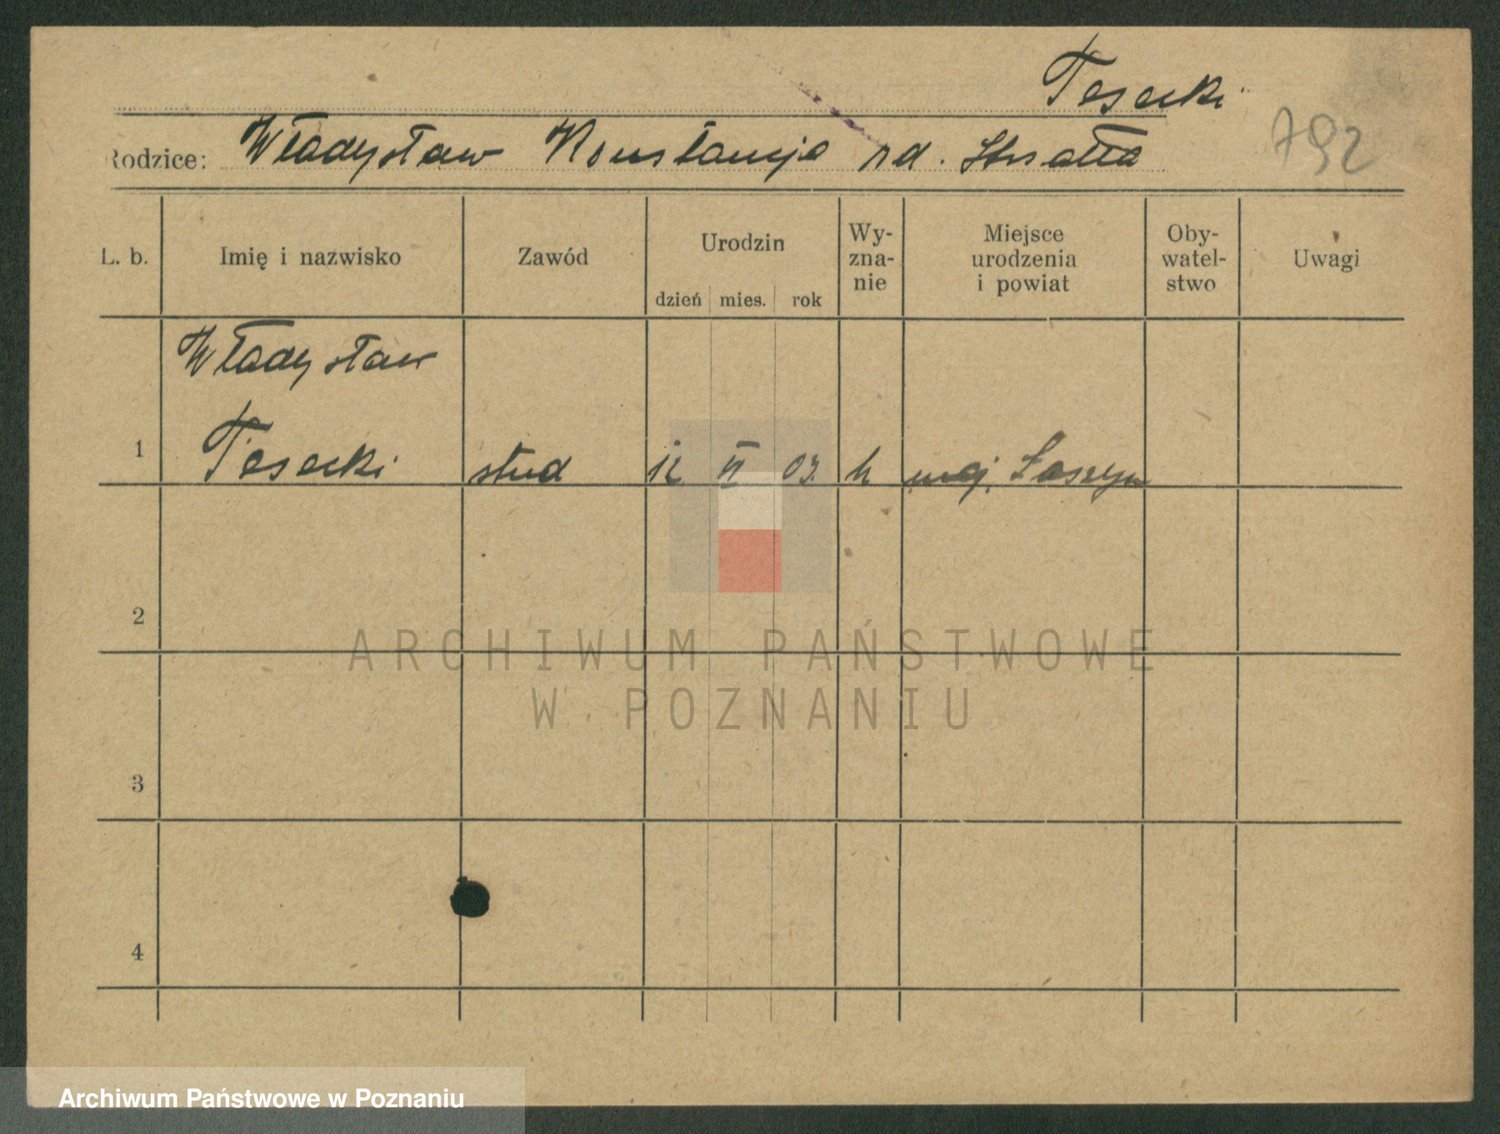 Tesecki
792
Rodzice: Władysław Konstancja rd. Strzałka
L. b. Imię i nazwisko Zawód Urodzin dzień mies. rok Wy-znanie Miejsce urodzenia i powiat Oby-watel-stwo Uwagi
Władysław
1 Tesecki stud 12 VI 03. k maj. Łaszyn
2
3
4
ARCHIWUM PAŃSTWOWE
W POZNANIU
Archiwum Państwowe w Poznaniu